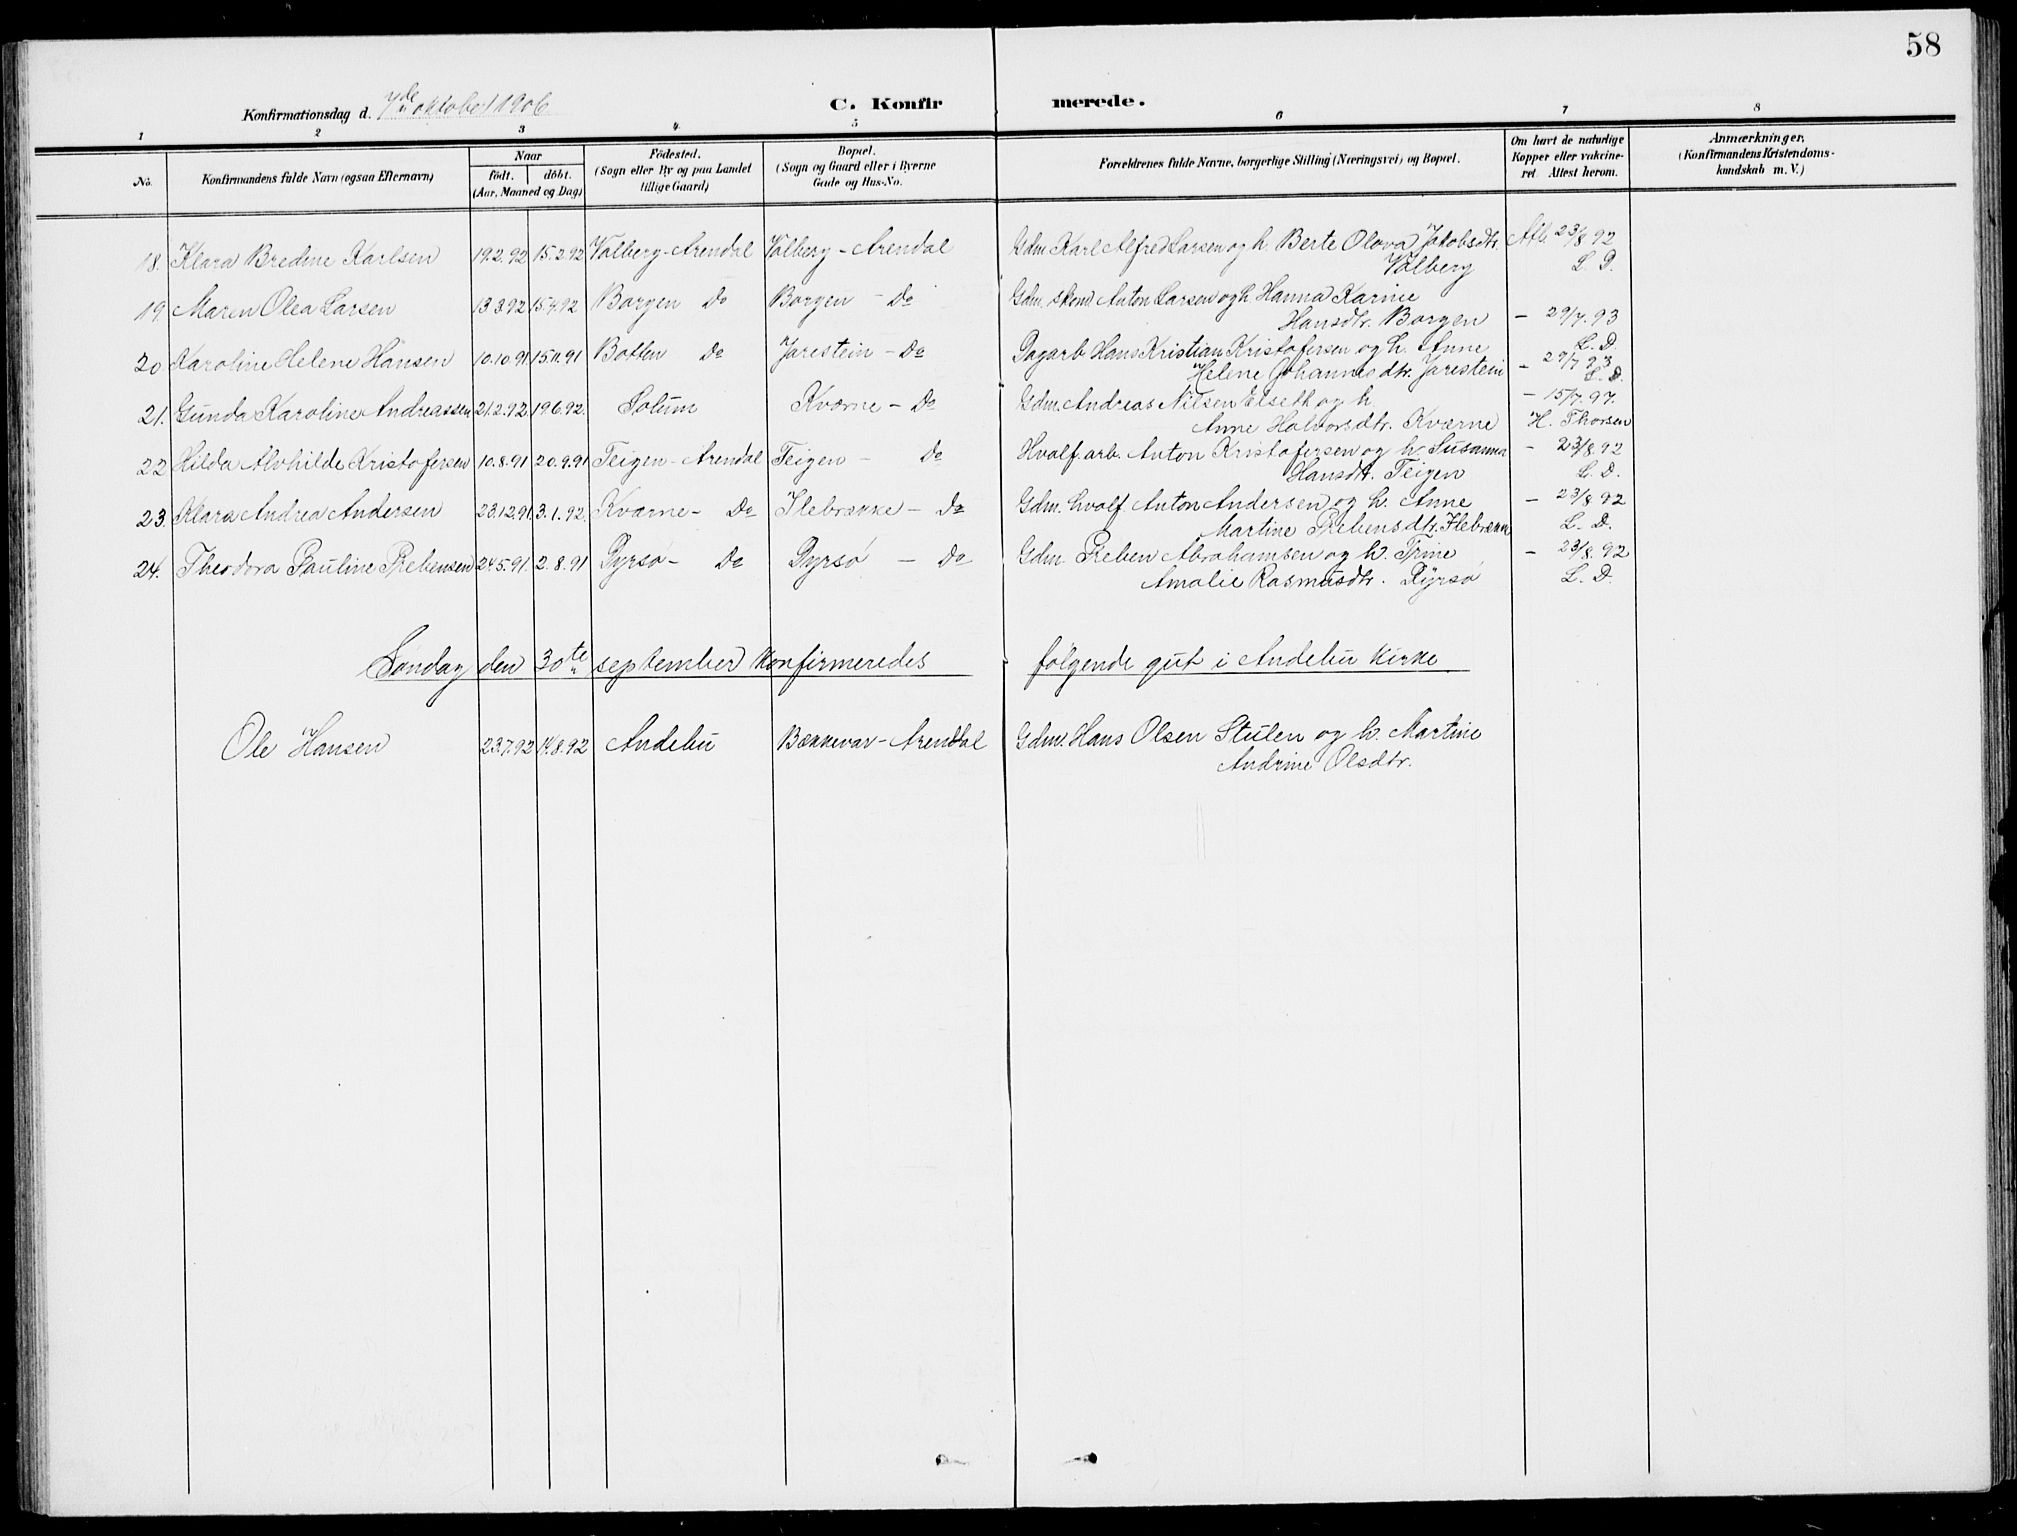 58
Konfirmationsdag d. 7de oktober 1906
C. Konfirmerede.
1 2 3 4 5 6 7 8
No.
Konfirmandens fulde Navn (ogsaa Efternavn)
Naar
födt. döbt.
(Aar, Maaned og Dag)
Födested.
(Sogn eller By og paa Landet
tillige Gaard)
Bopæl.
(Sogn og Gaard eller i Byerne
Gade og Hus-No.
Forældrenes fulde Navne, borgerlige Stilling (Næringsvei) og Bopæl.
Om havt de naturlige
Kopper eller vakcine-
ret. Attest herom.
Anmærkninger.
(Konfirmandens Kristendoms-
kundskab m. V.)
18. Klara Bredine Karlsen 19.2.92 15.2.92 Valberg-Arendal Valberg-Arendal Gdm. Karl Alfred Larsen og h. Berte Olava Jakobsdtr. Afb. 23/8 92
Valberg L. D.
19. Maren Olea Larsen 13.3.92 15.4.92 Borgen Do Borgen - Do Gdm. skomd Anton Larsen og h. Hanna Karine
Hansdtr. Borgen - 29/7. 93
L. D.
20 Karoline Helene Hansen 10.10.91 15.11.91 Botten Do Jarestein - Do Dagarb. Hans Kristian Kristofersen og h. Anne
Helene Johannesdtr. Jarestein - 29/7 93
L. D.
21. Gunda Karoline Andreassen 21.2.92 19.6.92. Solum Kværne - Do Gdm. Andreas Nilsen Elseth og h. - 15/7. 97.
Anne Halvorsdtr. Kværne H. Thorsen
22 Hilda Alvhilde Kristofersen 10.8.91 20.9.91 Teigen - Arendal Teigen - Do Hvalf. arb. Anton Kristofersen og h. Susanna - 23/8.92
Hansdt. Teigen L. D.
23. Klara Andrea Andersen 23.12.91 3.1.92. Kværne - Do Ilebrække - Do Gdm. hvalf. Anton Andersen og h. Anne - 23/8 92
Martine Prebensdtr. Ilebrække L. D.
24. Theodora Pauline Prebensen 24.5.91. 2.8.91 Pyrsø - Do Pyrsø - Do Gdm. Preben Abrahamsen og h. Trine - 23/8.92
Amalie Rasmusdtr. Pyrsø L. D.
Søndag den 30te september konfirmeredes følgende gut i Andebu kirke
Ole Hansen 23.7.92 14.8.92 Andebu Bækkevar - Arendal Gdm. Hans Olsen Stulen og h. Martine
Andrine Olsdtr.